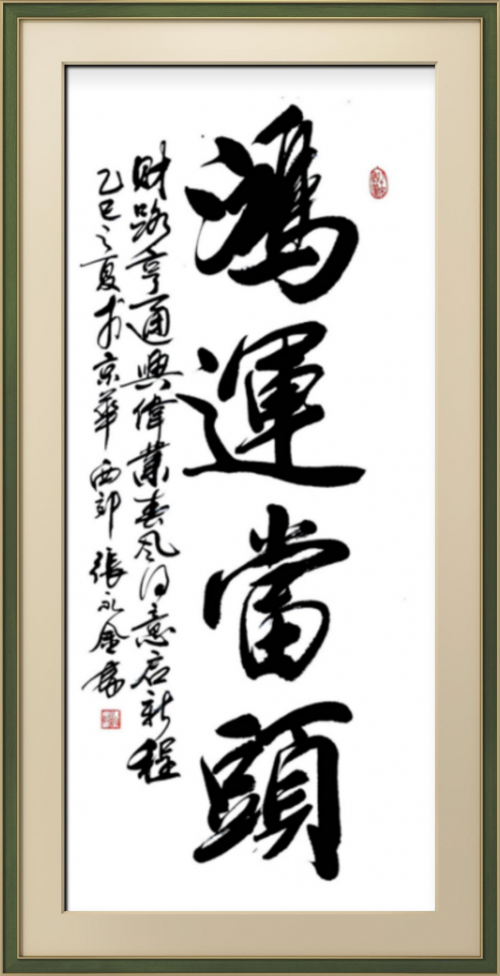 鴻運當頭
财路亨通興偉業春风得意启新程
乙巳之夏于京華西郊張永金書